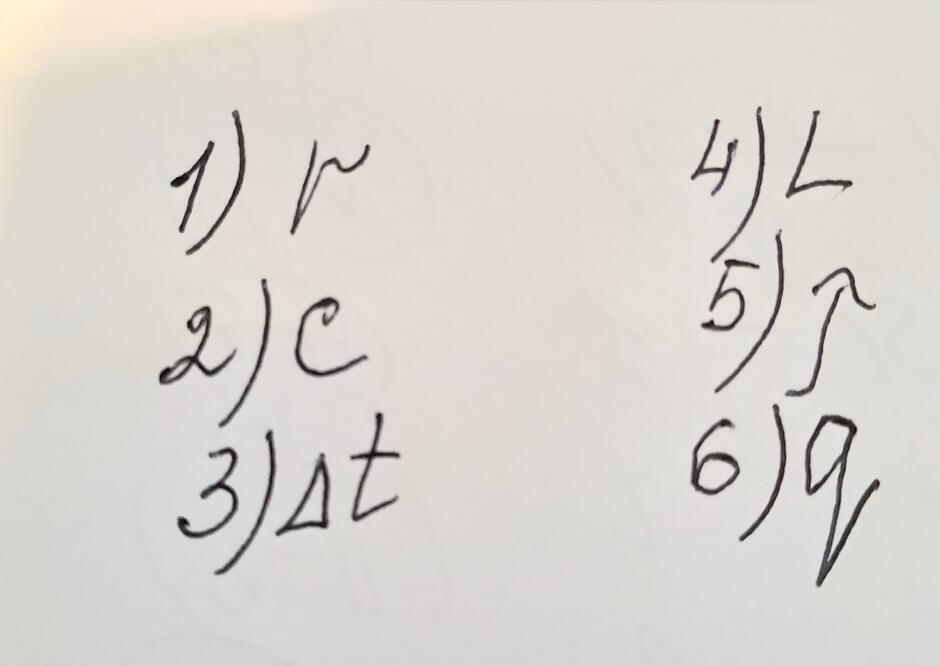 1) r
2) c
3) Δt
4) L
5)
6) q